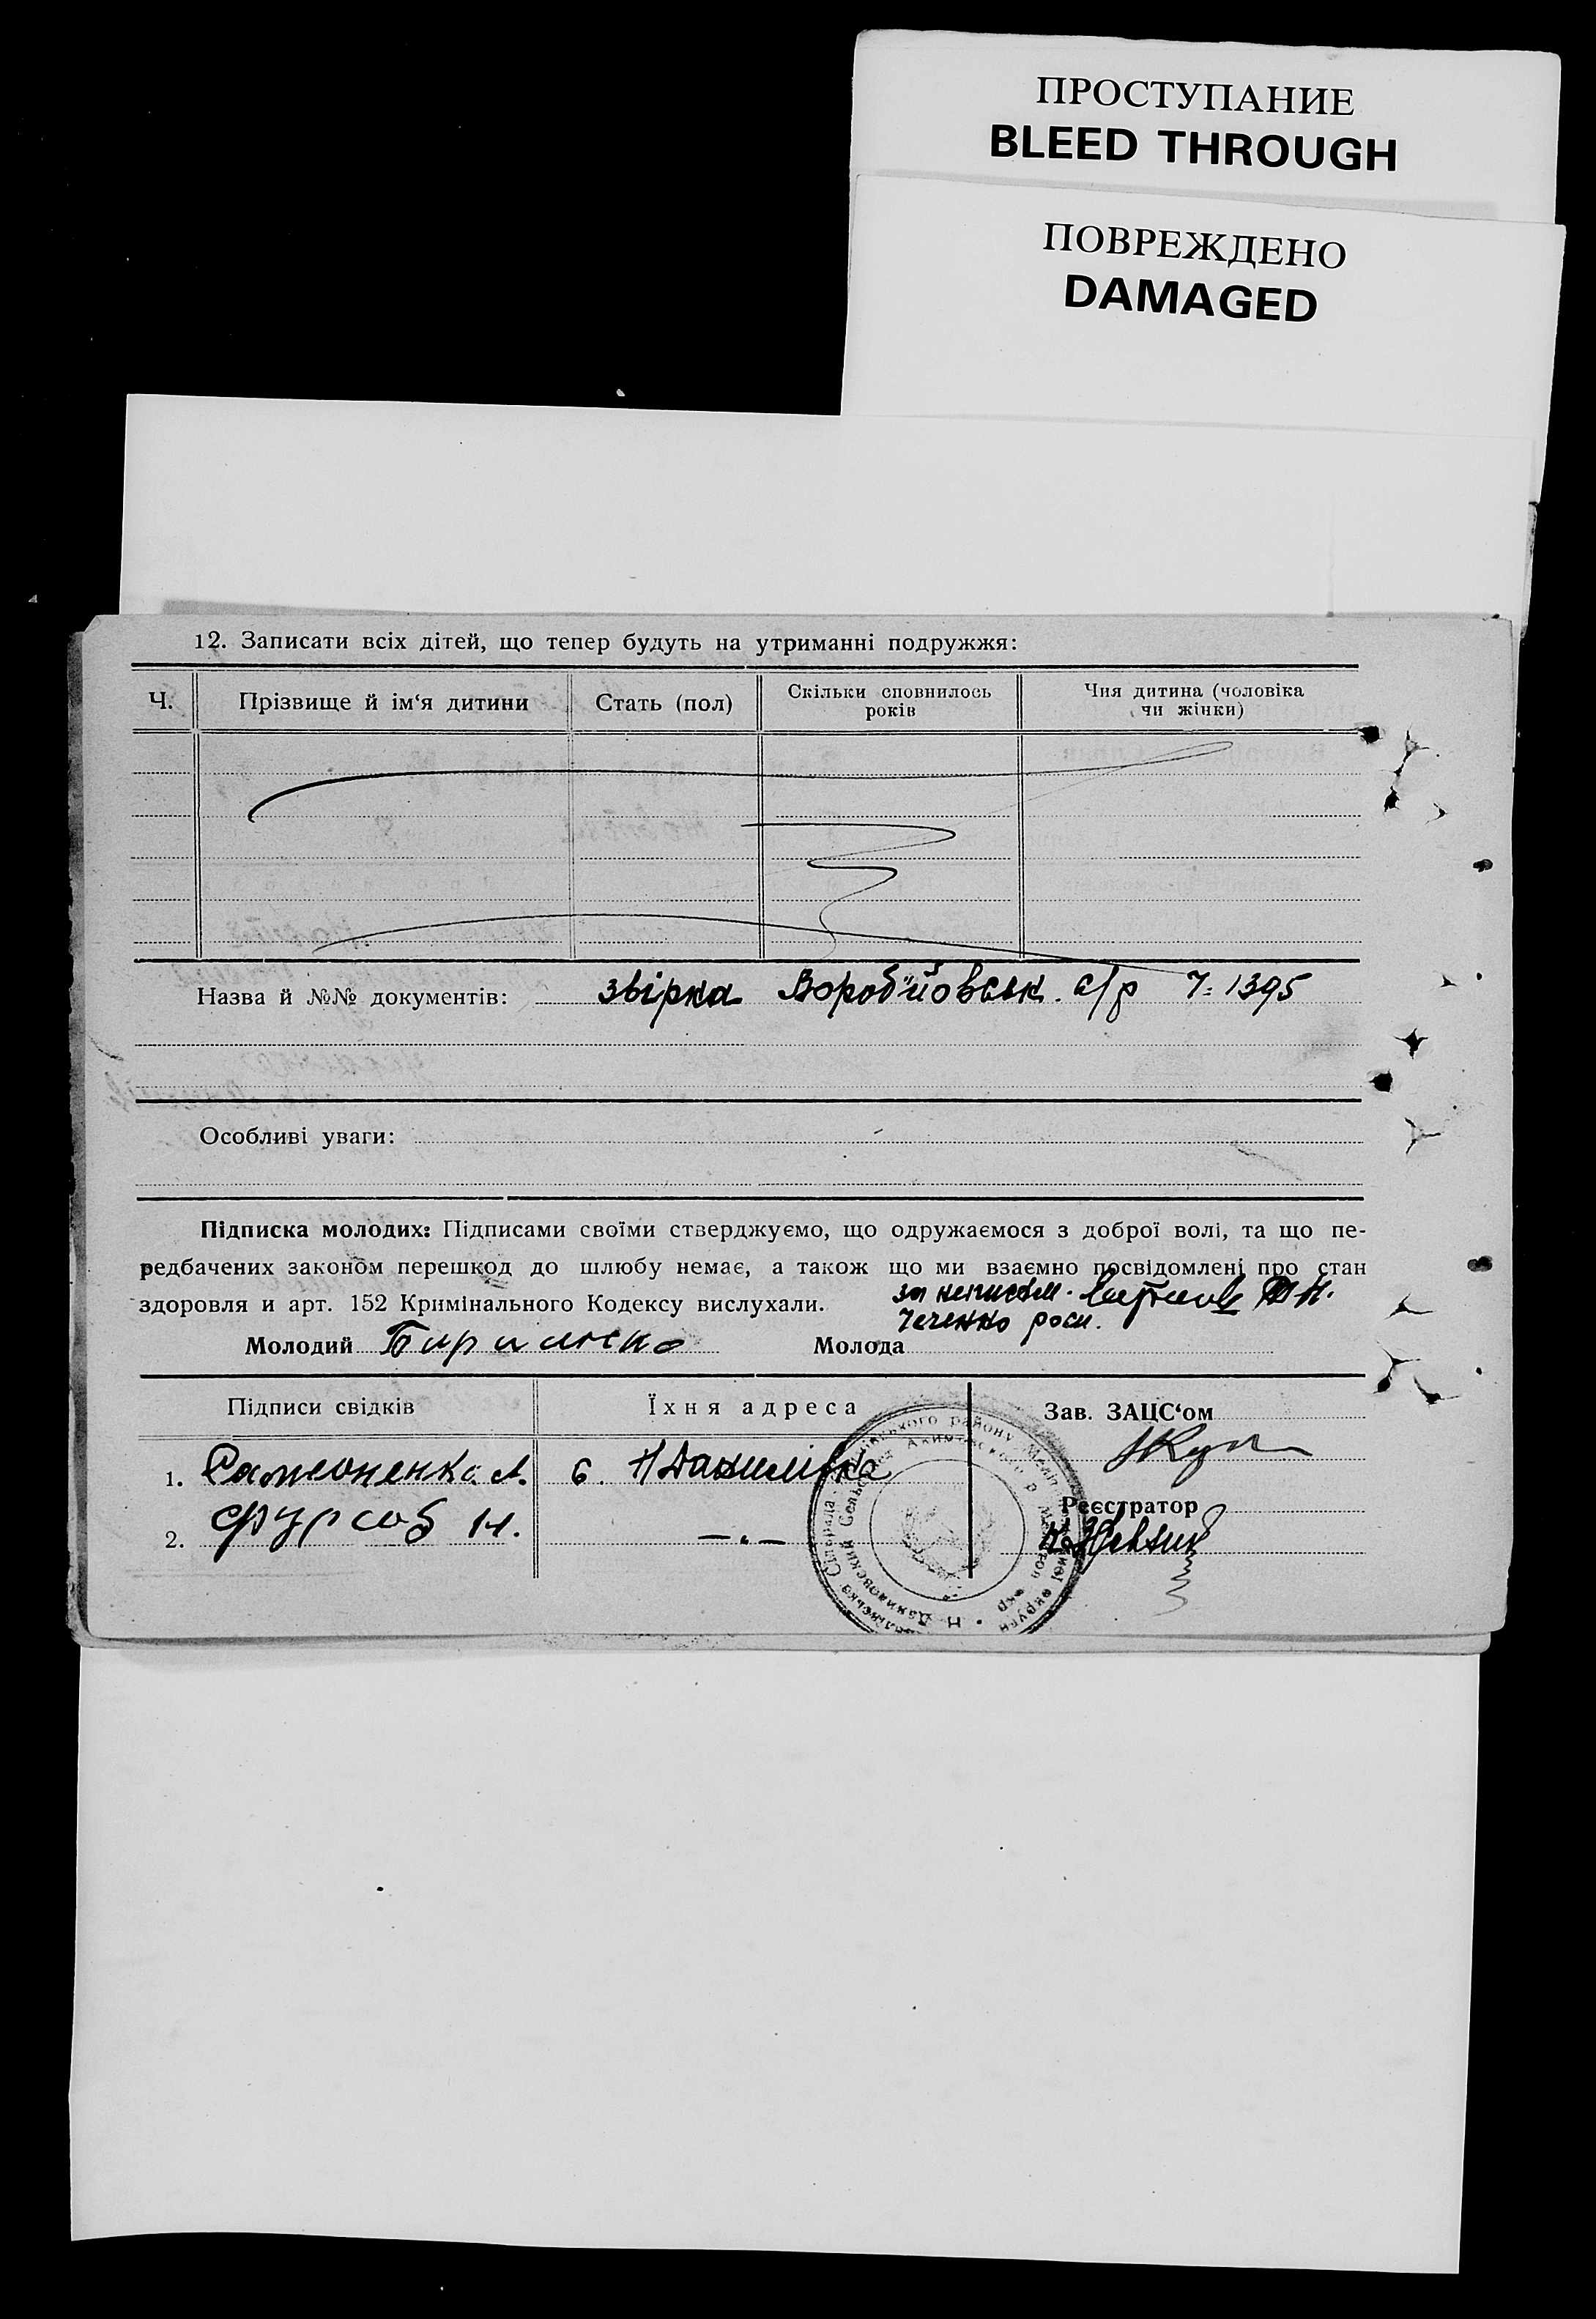 ПРОСТУПАНИЕ
BLEED THROUGH
ПОВРЕЖДЕНО
DAMAGED
12. Записати всіх дітей, що тепер будуть на утриманні подружжя:
Ч. Прізвище й ім‘я дитини Стать (пол) Скільки сповнилось років Чия дитина (чоловіка чи жінки)
Назва й №№ документів: звірка Вороб"йовськ. с/р Ч: 1395
Особливі уваги:
Підписка молодих: Підписами своїми стверджуємо, що одружаємося з доброї волі, та що пе-
редбачених законом перешкод до шлюбу немає, а також що ми взаємно посвідомлені про стан
здоровля и арт. 152 Кримінального Кодексу вислухали.
за неписьм.
роси.
Молодий Молода
Підписи свідків Їхня адреса Зав. ЗАЦС‘ом
1. Самоненко А. с. Н Данилівка
Реєстратор
2. Фурсов Н. —„—